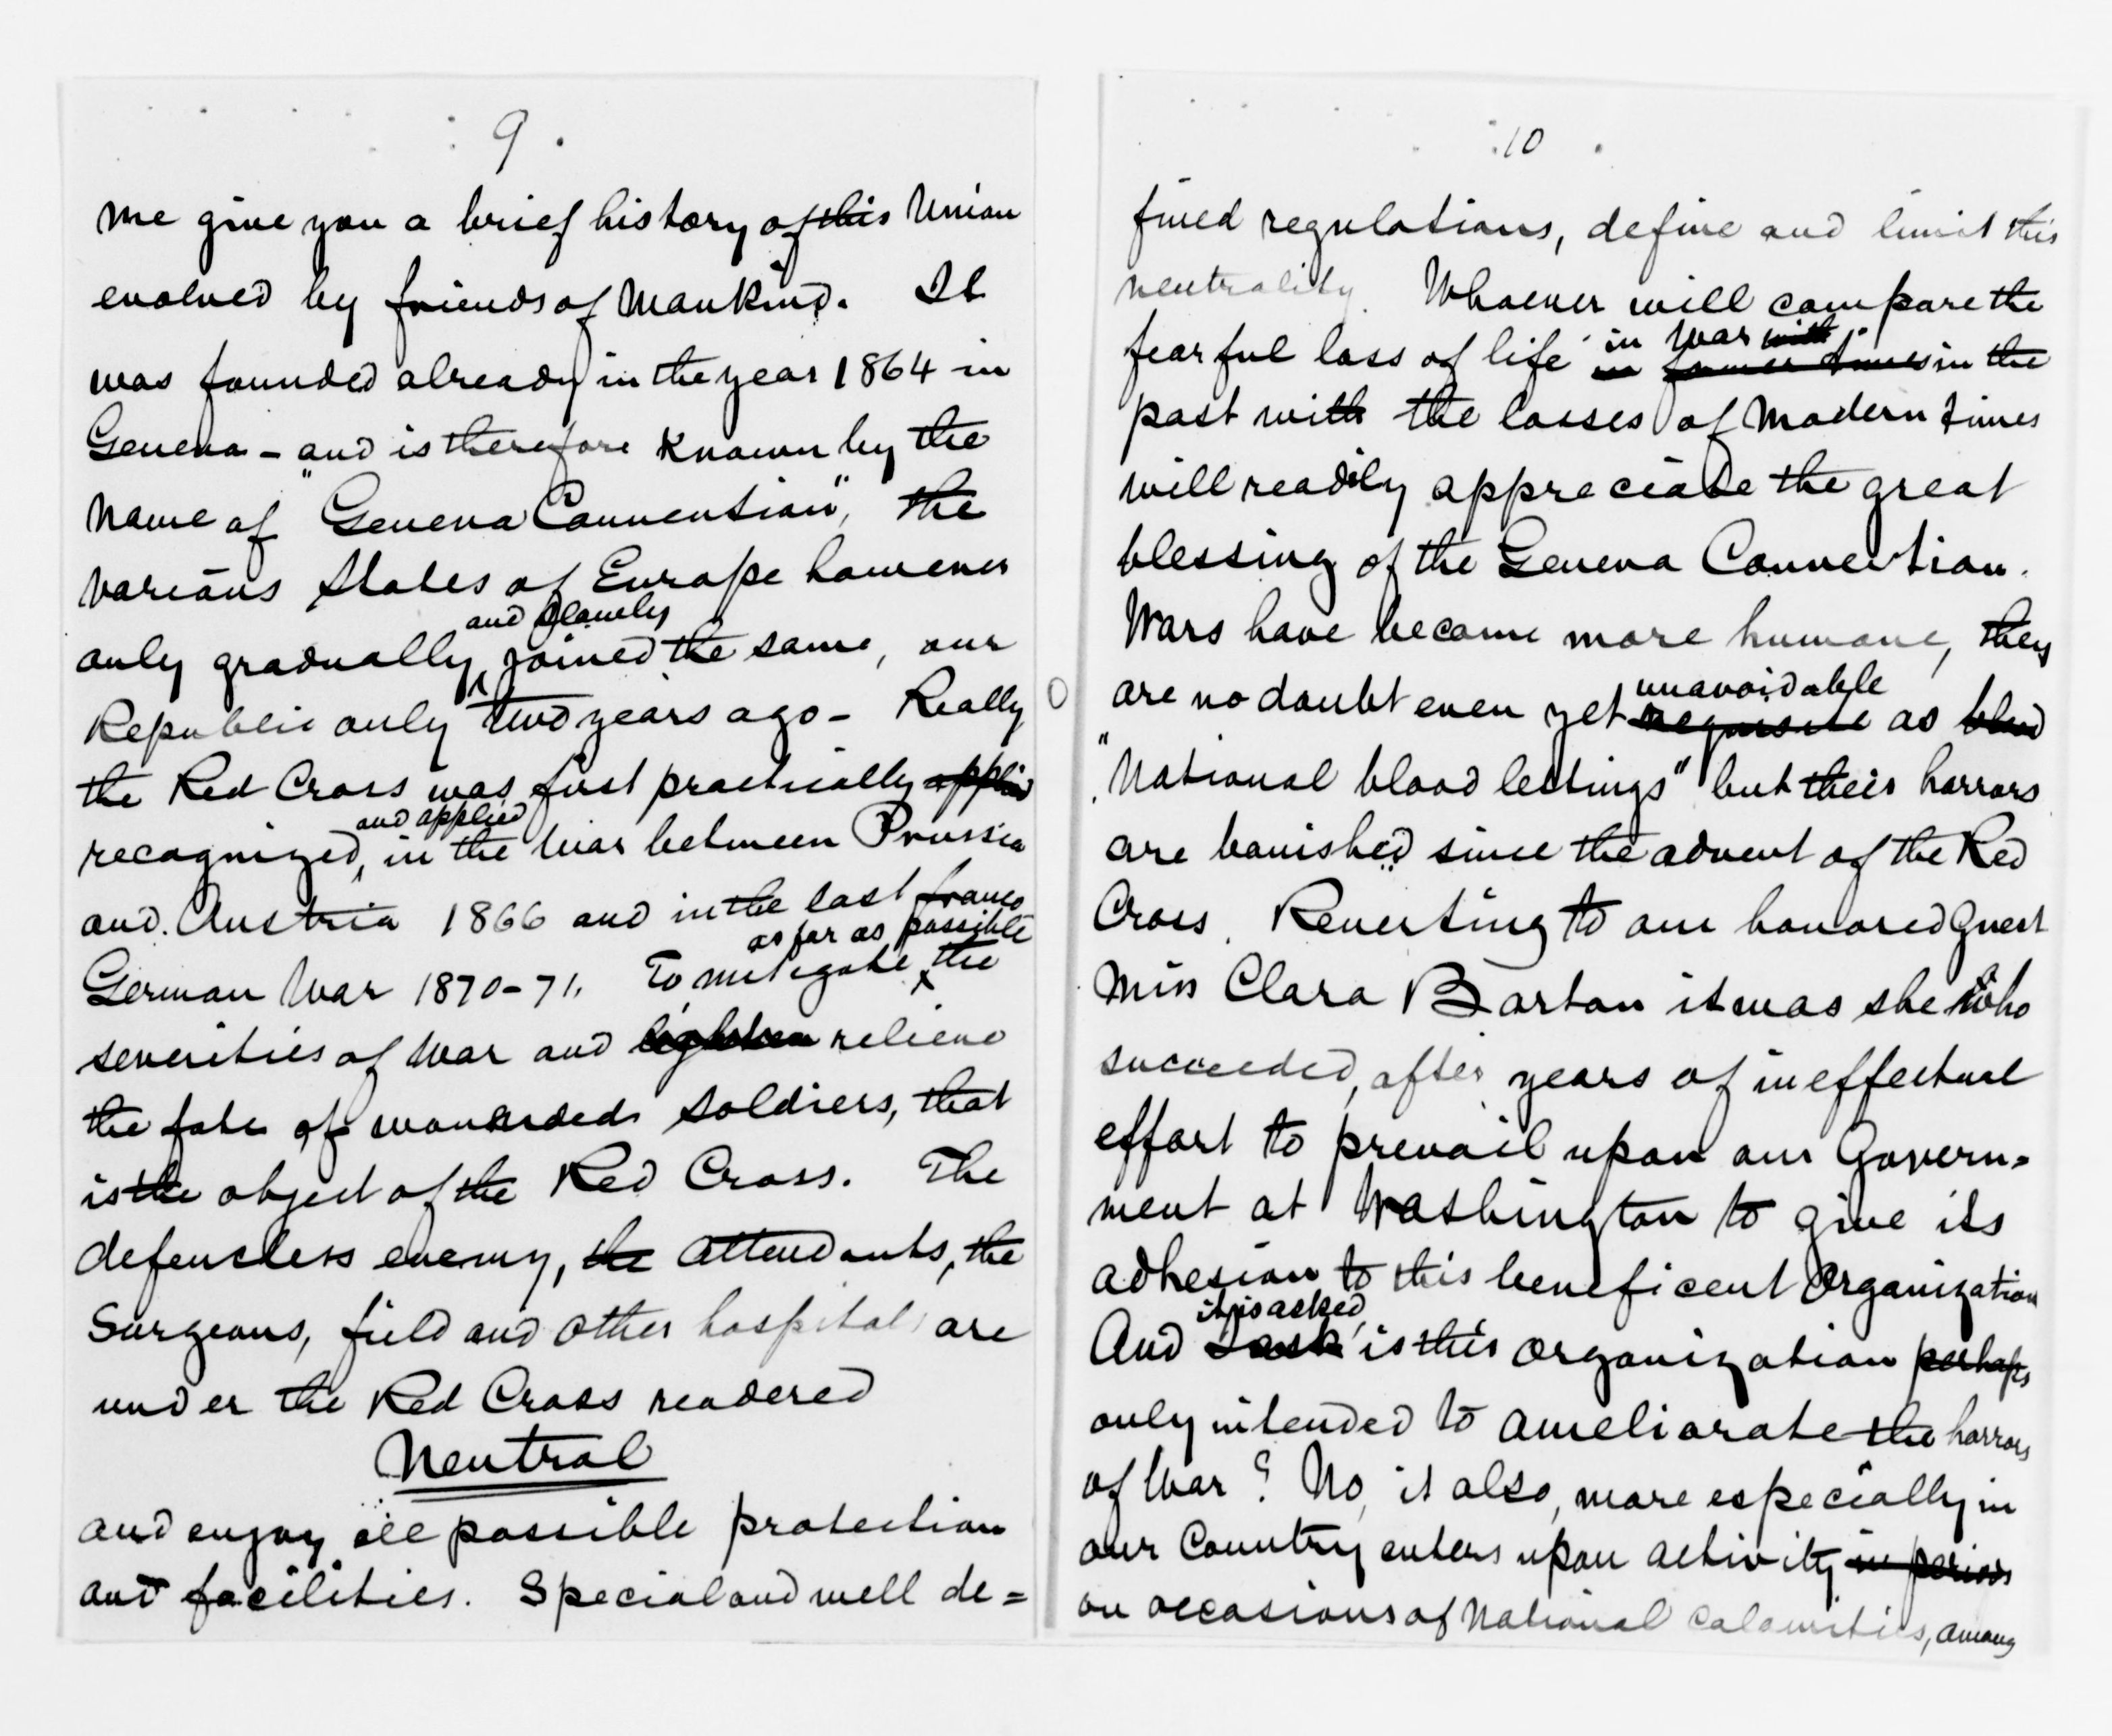 9.
me give you a brief history of this Union
evolved by friends of Mankind. It
was founded already in the year 1864 in
Geneva - and is therefore known by the
name of "Geneva Convention", the
various States of Europe however
and slowly
only gradually, joined the same, our
Republic only two years ago - Really
the Red Cross was first practically applied
and applied
recognized, in the War between Prussia
and Austria 1866 and in the last franco
as far as possible
German War 1870-71. To mitigate the
severities of War and lighten relieve
the fate of wounded soldiers, that
is the object of the Red Cross. The
defenceless enemy, the attendants, the
Surgeons, field and other hospitals are
under the Red Cross rendered
Neutral
and enjoy all possible protection
and facilities. Special and well de=
10
fined regulations, define and limit this
neutrality. Whoever will compare the
in War with
fearful loss of life in former times in the
past with the losses of Modern times
will readily appreciate the great
blessing of the Geneva Convention.
Wars have become more humane, they
unavoidable
are no doubt even yet requisite as blood
"National blood lettings" but their horrors
are banished since the advent of the Red
Cross. Reverting to our honored Guest
Miss Clara Barton it was she who
succeeded, after years of ineffectual
effort to prevail upon our Govern=
ment at Washington to give its
adhesion to this beneficent Organization
it is asked,
And I ask is this organization perhaps
only intended to ameliorate the horrors
of War? No, it also, more especially in
our Country enters upon activity in periods
on occasions of National calamities, among